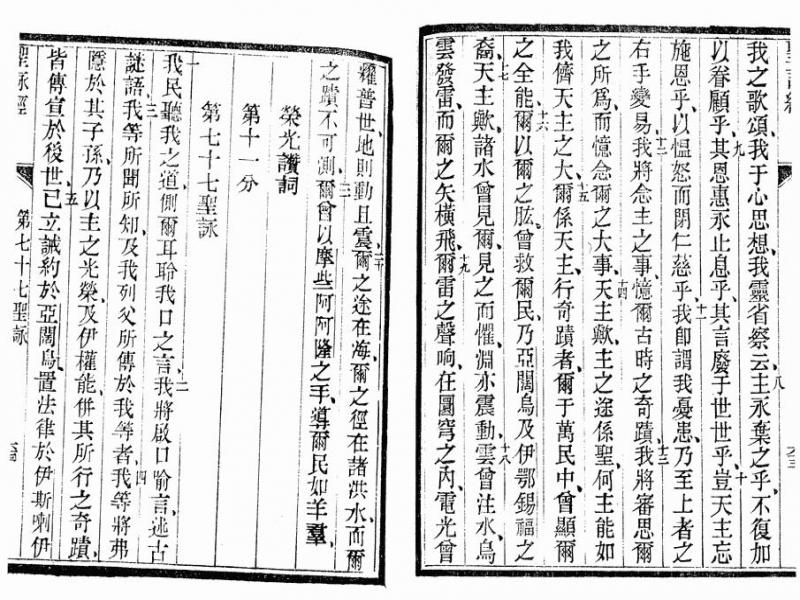 聖詠經
六十三
我之歌頌、我于心思想、我靈省察云主永棄之乎、不復加
以眷顧乎、其恩惠永止息乎、其言廢于世世乎、豈天主忘
施恩乎、以愠怒而閉仁慈乎、我卽謂我憂患、乃至上者之
右手變易、我將念主之事、憶爾古時之奇蹟、我將審思爾
之所爲、而憶念爾之大事、天主歟、主之途係聖、何主能如
我儕天主之大、爾係天主、行奇蹟者、爾于萬民中、曾顯爾
之全能、爾以爾之肱、曾救爾民、乃亞闊烏及伊鄂錫福之
裔、天主歟、諸水曾見爾、見之而懼、淵亦震動、雲曾注水、烏
雲發雷、而爾之矢橫飛、爾雷之聲响、在圜穹之內、電光曾
耀普世、地則動且震、爾之途在海、爾之徑在諸洪水、而爾
之蹟不可測、爾曾以摩些阿阿隆之手、導爾民如羊羣、
榮光讚詞
第十一分
第七十七聖詠
一我民聽我之道、側爾耳聆我口之言、二我將啟口喻言、述古
謎語、三我等所聞所知、及我列父所傳於我等者、四我等將弗
隱於其子孫、乃以主之光榮、及伊權能、併其所行之奇蹟、
皆傳宣於後世、五已立誡約於亞闊烏、置法律於伊斯喇伊
聖詠經
第七十七聖詠
六十四